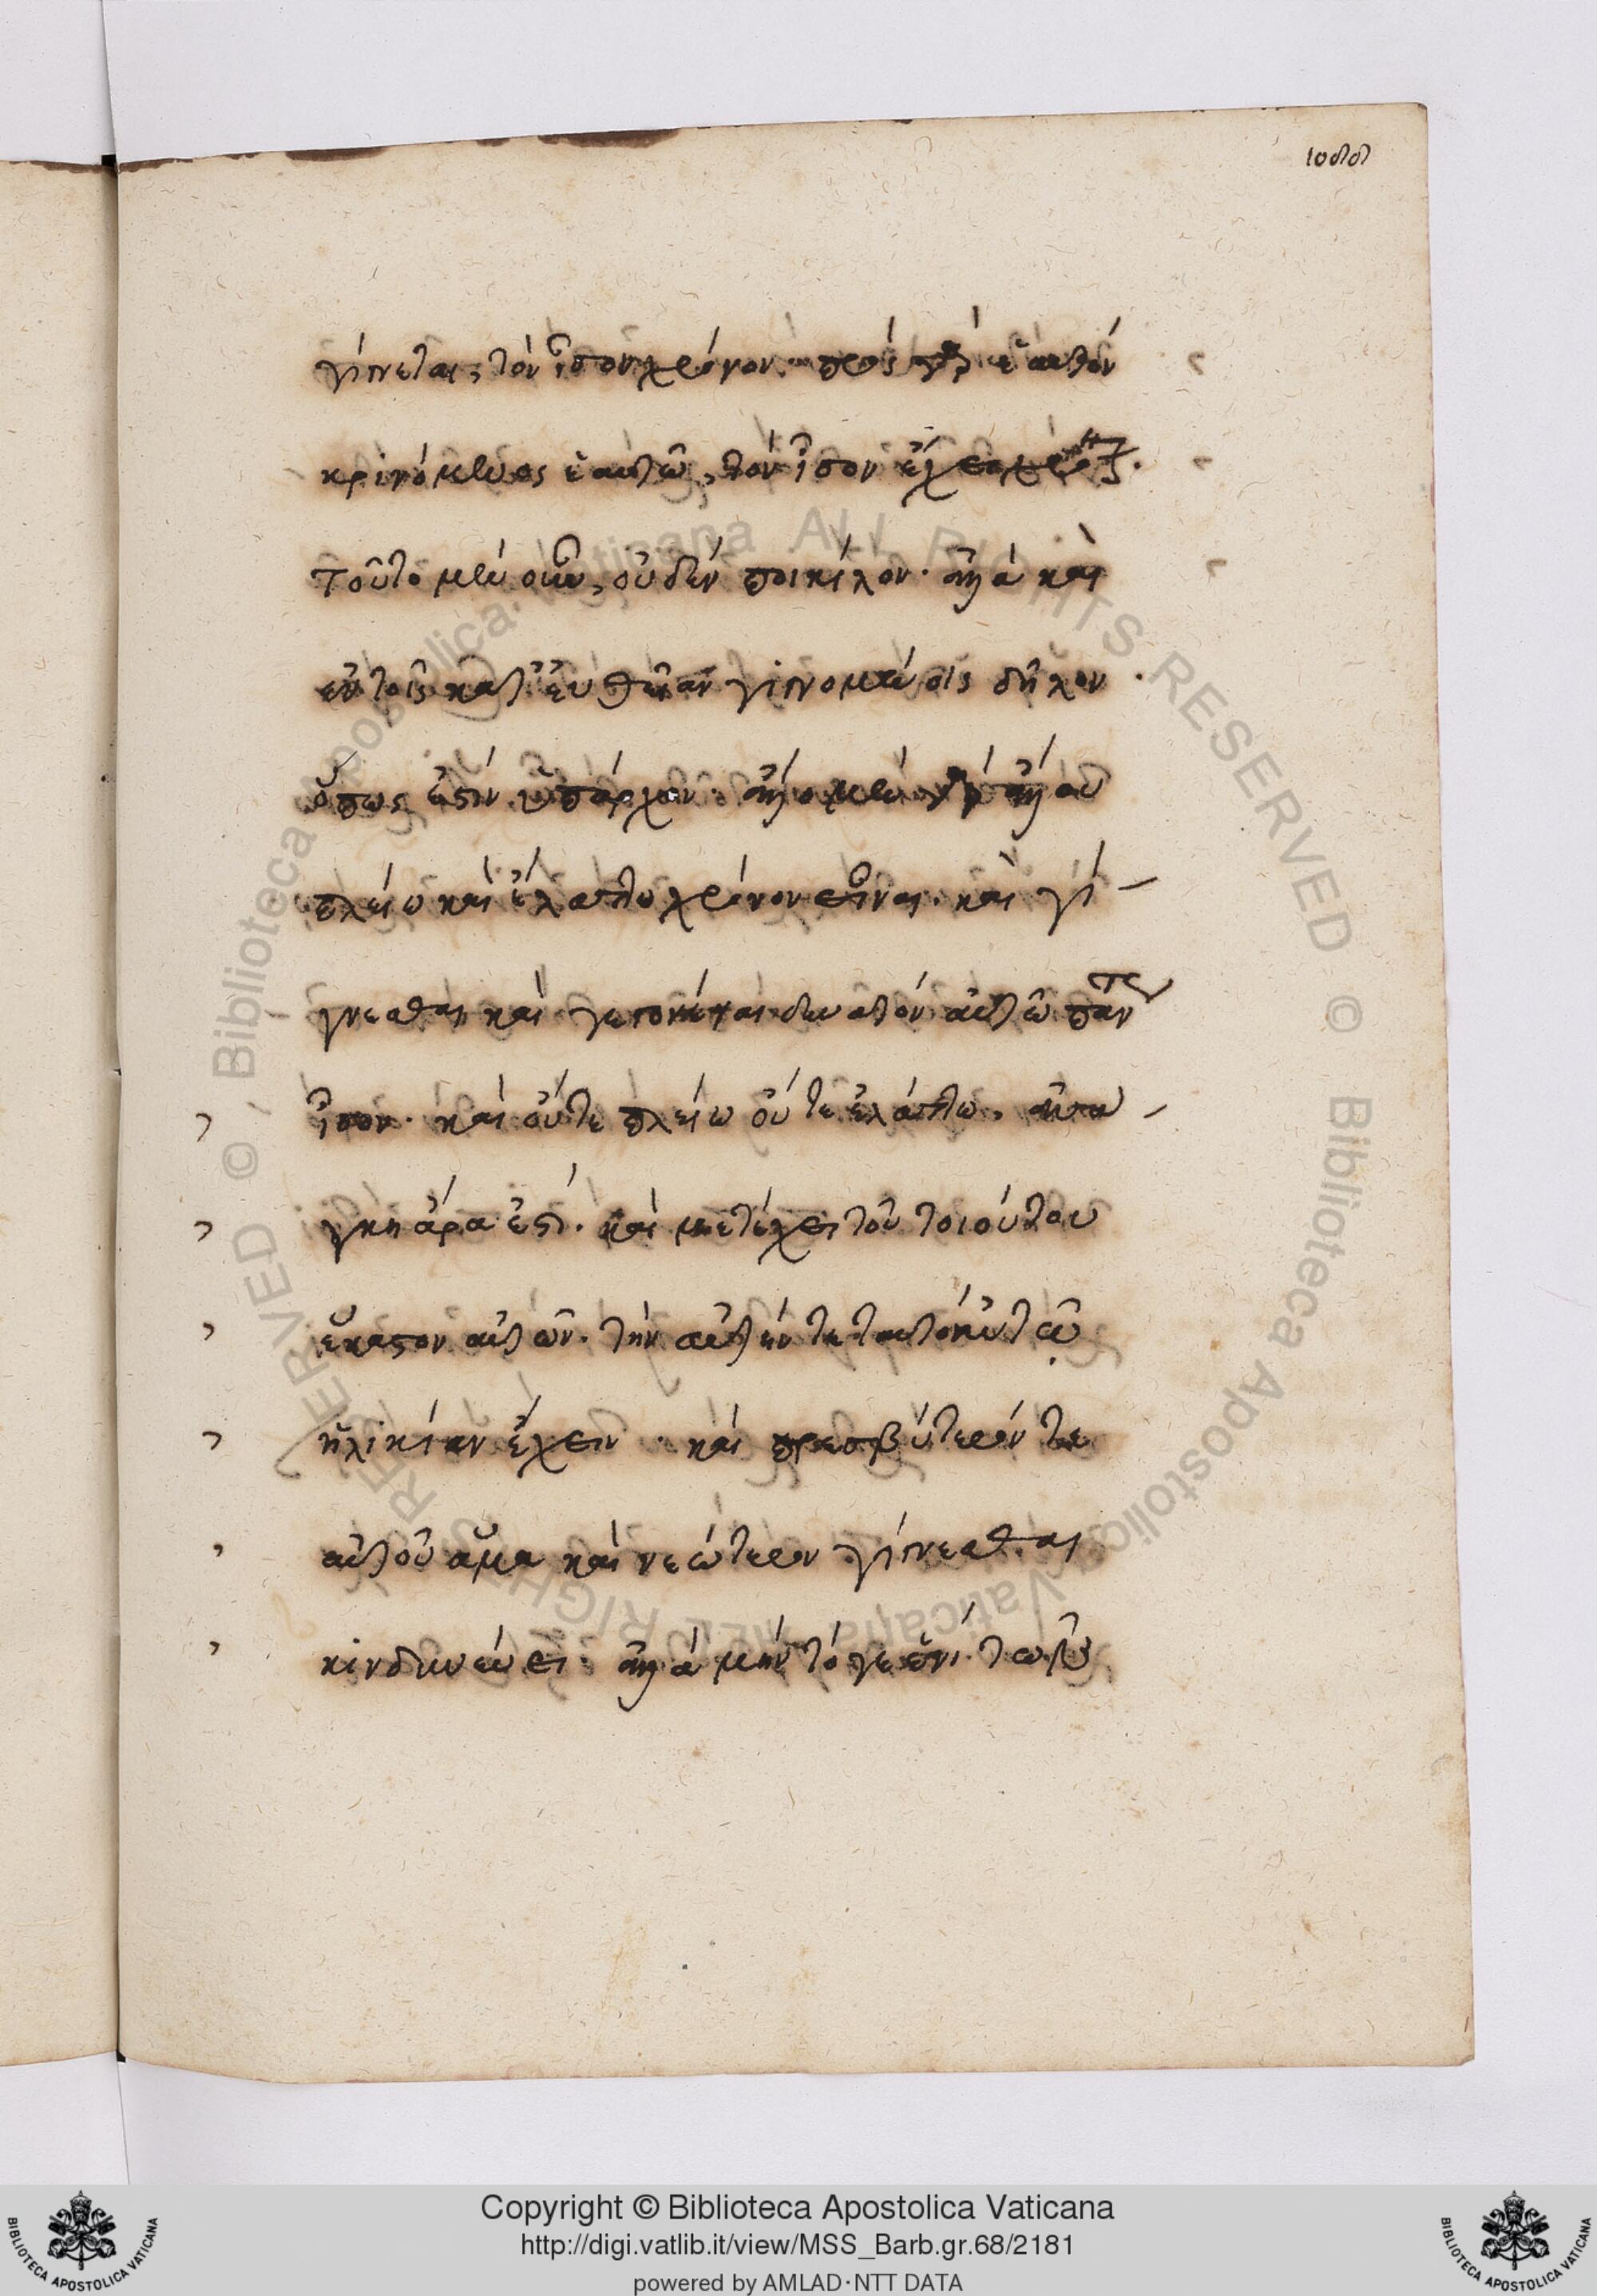 1088
γίγνεται, τὸν ἴσον χρόνον. πρὸς γὰρ ἑαυτὸν
κρινόμενος ἑαυτῷ, τὸν ἴσον ἔχει
τοῦτο μὲν οὖν, οὐδὲν ποικίλον. ἀλλὰ καὶ
ἐν τοῖς κατ' εὐθεῖαν γιγνομένοις δῆλον
ὅπως ἐστὶν ὑπάρχον. ἀλλ' ὁ μὲν γὰρ ἄλλου
πλείω καὶ ἐλάττω χρόνον εἶναι. καὶ γί-
γνεσθαι καὶ γεγονέναι δυνατὸν αὐτῷ
ἴσον. καὶ οὔτε πλείω οὔτε ἐλάττω. ἀνά-
γκη ἄρα ἐστί. καὶ μετέχει τοῦ τοιούτου
ἕκαστον αὐτῶν. τὴν αὐτήν τε τωτὸν αὐτῷ
ἡλικίαν ἔχειν. καὶ πρεσβύτερόν τε
αὐτοῦ ἅμα καὶ νεώτερον γίγνεσθαι
κινδυνεύει. ἀλλὰ μὴν τό γε ἑνὶ
Copyright © Biblioteca Apostolica Vaticana
http://digi.vatlib.it/view/MSS_Barb.gr.68/2181
powered by AMLAD·NTT DATA
BIBLIOTECA APOSTOLICA VATICANA
BIBLIOTECA APOSTOLICA VATICANA
© Biblioteca Apostolica Vaticana ALL RIGHTS RESERVED © Biblioteca Apostolica Vaticana ALL RIGHTS RESERVED